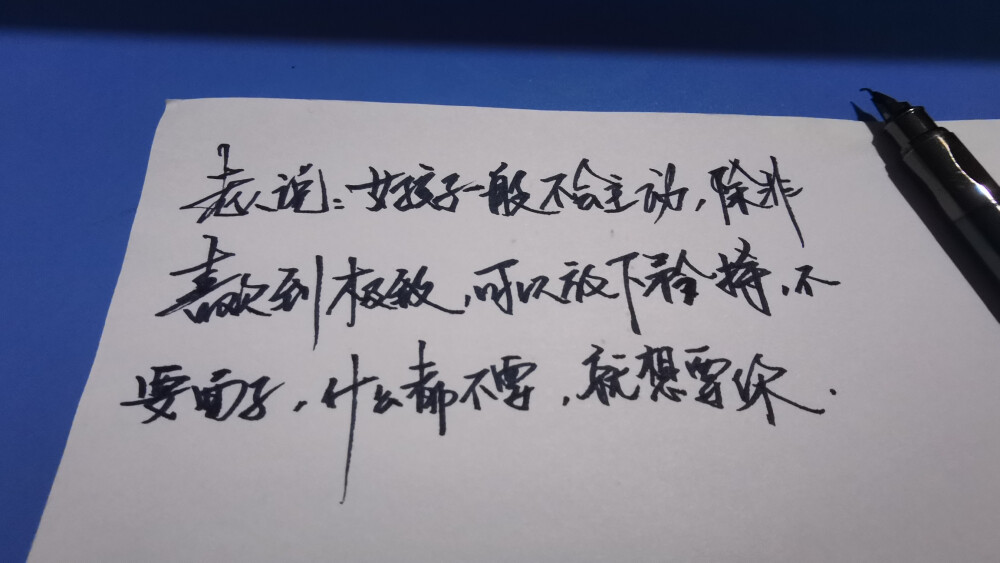 老人说：女孩子一般不会主动，除非
喜欢到极致，可以放下矜持，不
要面子，什么都不要，就想要你．